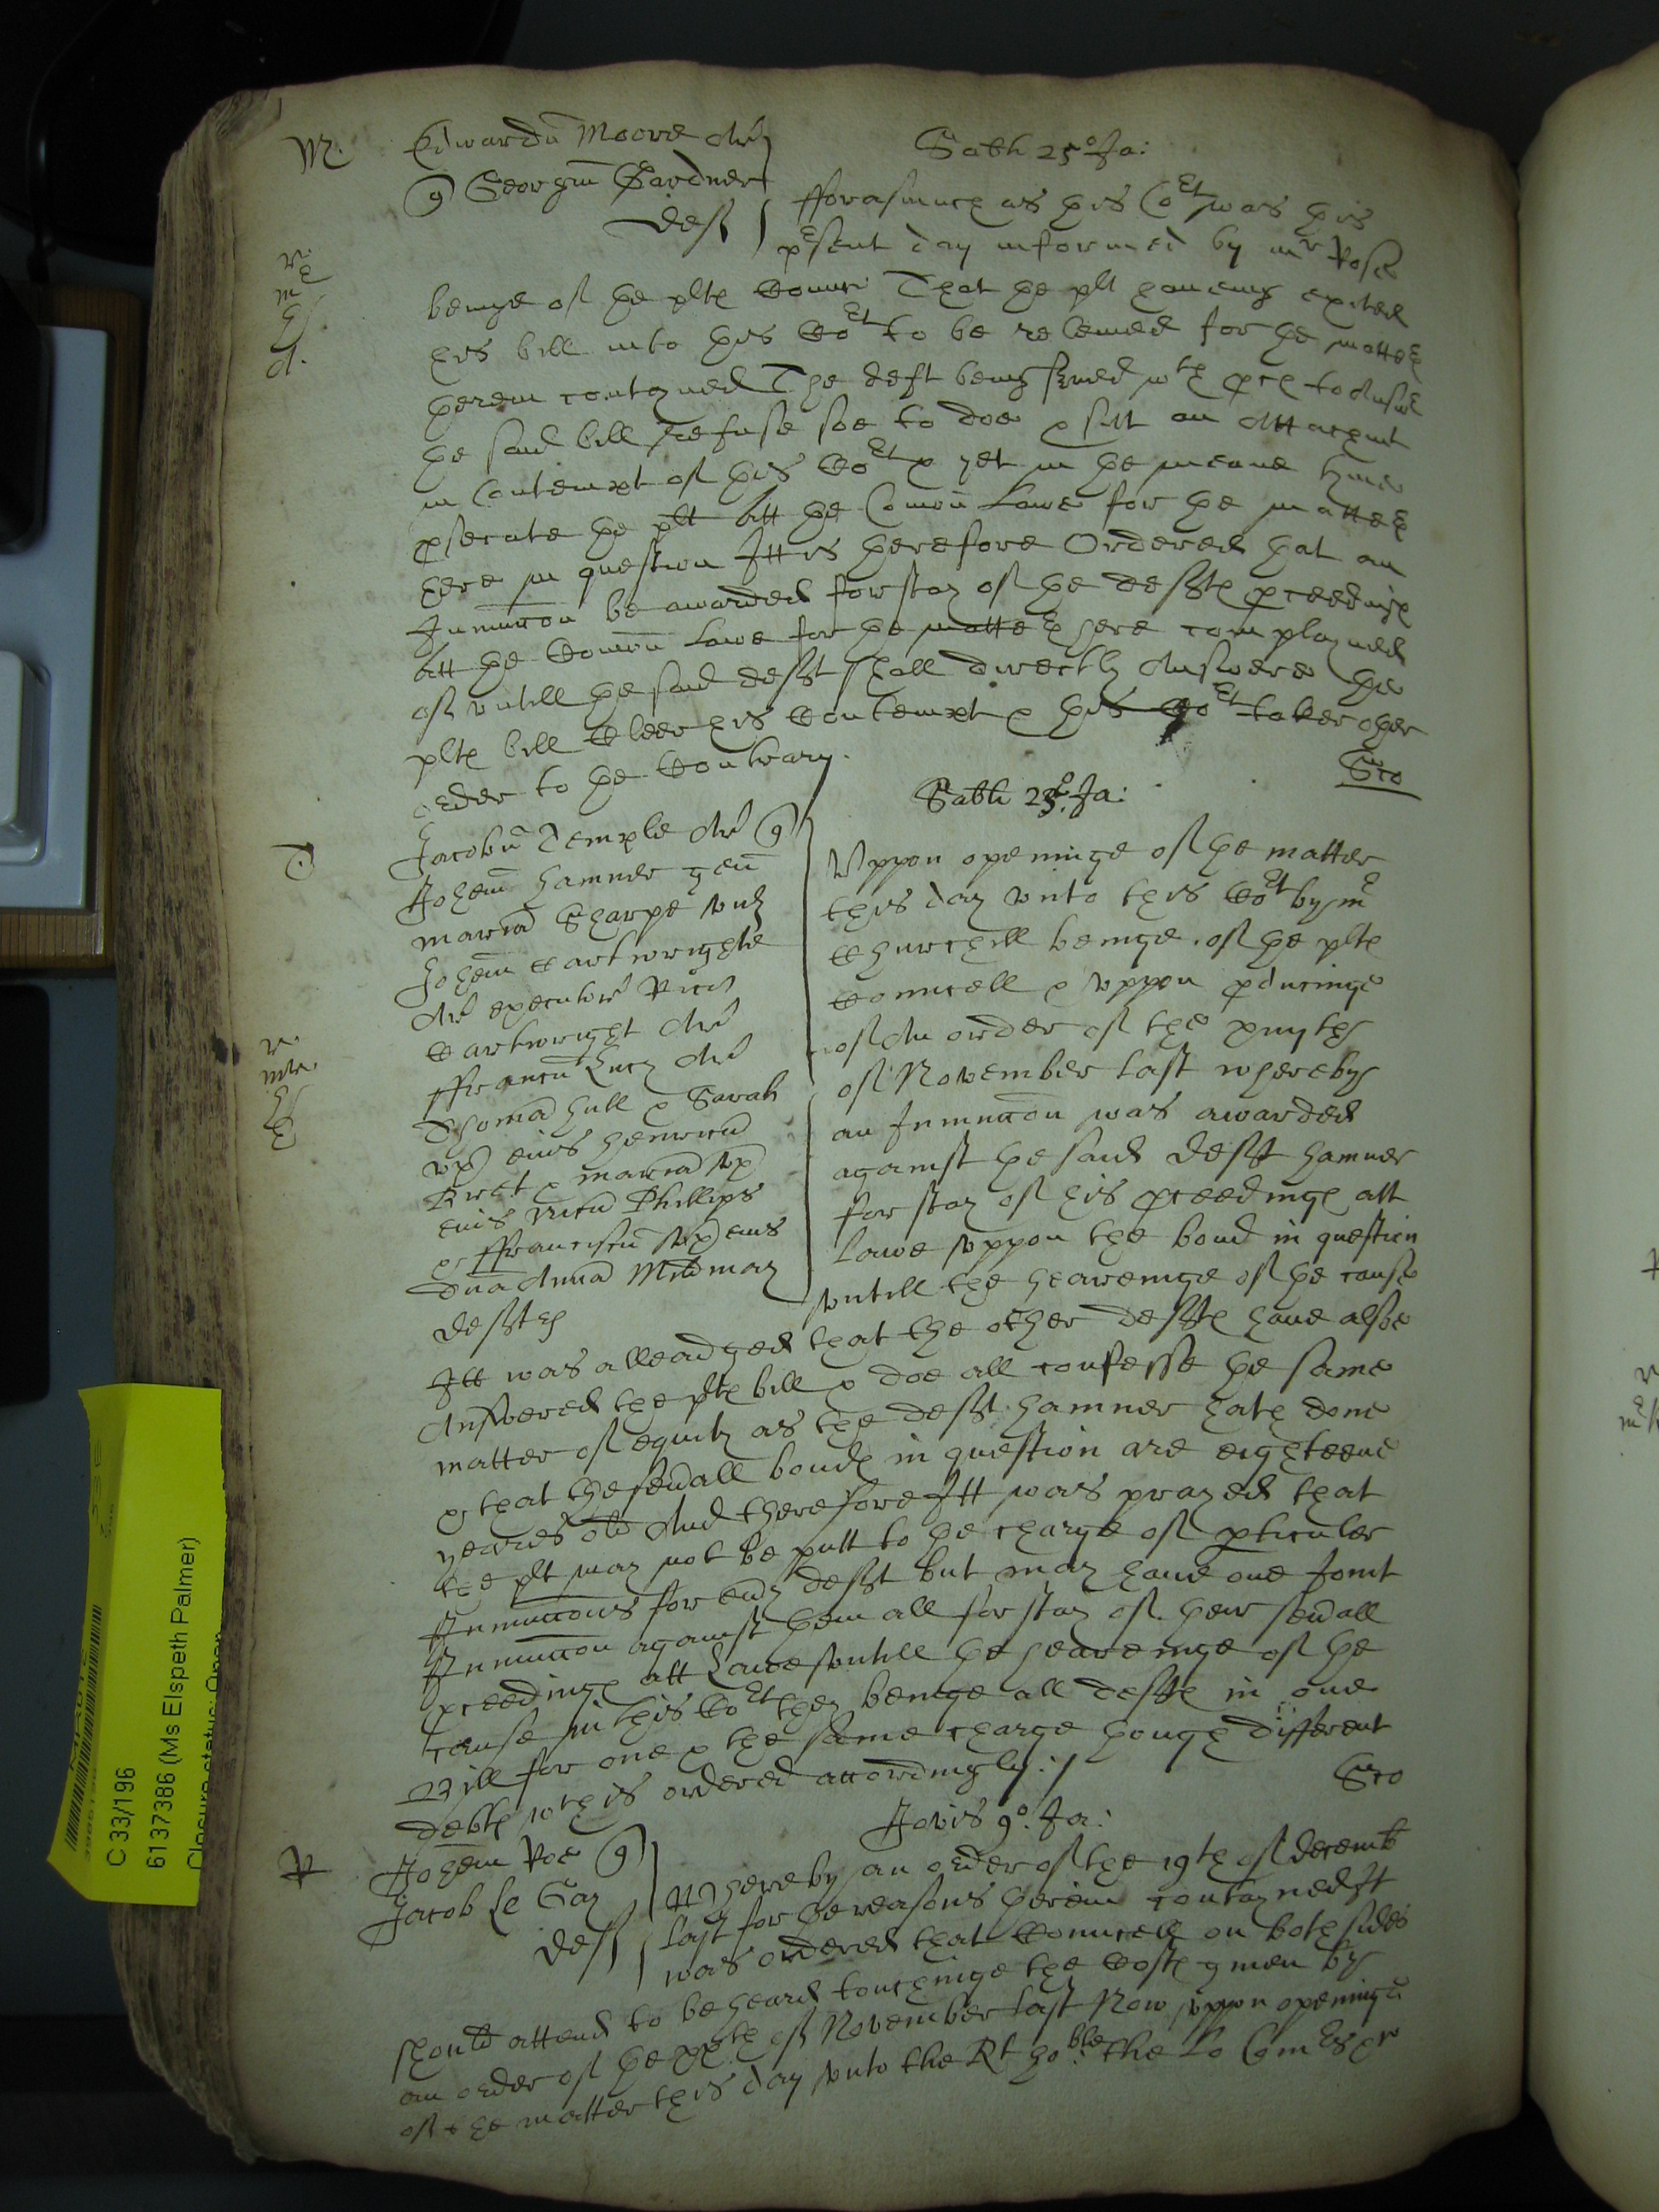 M.
Edwardu Moore Ar
q Georgiu Gardner
deft
Sabti 25o Ja:
fforasmuch as this Cort was this
psent day informed by mr Rose
beinge of the plts Councell That the plt haveing exited
his bill into this Cort to be releived for the matters
therein contayned The deft being served wth pces to Answer
the said bill refuse soe to doe & sitt an Attachmt
in Contempt of this Cort & yet in the meane tyme
psecute the plt att the Comon Lawe for the matters
here in question Itt is therefore Ordered that an
Iniunccon be awarded for stay of the defts pceedings
att the Comon Lawe for the matters here complayned
of untill the said deft shall directly Answere the
plts bill cleer his Contempt & this Cort take other
order to the Contrary.
Sabti 25o Ja:
T
Jacobu Temple Ar q
Johem Hamner gen
maria Sharpe vid
Johem Cartwrighte
Ar executor Rici
Cartwright Ar
ffrancu Lucy Ar
Thoma Hull & Sarah
ux eius Henricu
& maria ux
eius Ricu Phillips
& ffranciscu ux eius
dna Anna Mildmay
defts
Uppon openinge of the matter
this day unto this Cort by mr
Churchill beinge of the plts
Councell & uppon pducinge
of An order of the
of November last whereby
an Iniunccon was awarded
against the said deft Hamner
for stay of his pceedings att
Lawe uppon the bond in question
untill the heareinge of the cause
Itt was alleadged that the other defts have alsoe
Answered the plts bill & doe all confesse the same
matter of equity as the deft Hamner hath done
& that the sevall bonds in question are eighteene
yeares old And therefore Itt was prayed that
the plt may not be putt to the charge of pticuler
Iniunccons for evy deft but may have one Joint
Iniunccon against them all for stay of their sevall
pceedings att Lawe untill the heareinge of the
cause in this Cort they beinge all defts in one
Bill for one & the same charge though different
debts wch is ordered accordingly:/
Jovis 9o. Ja:
R
Johem Roe q
Jacob Le Gay
deft
Whereby an order of the 19th of decemb
last for the reasons therein contayned It
was ordered that Councell on both sides
should attend to be heard touchinge the Costs given by
an order of the xxth of November last Now uppon openinge
of the matter this day unto the Rt hoble: the Lo Comrs
C 33/196
6137386 (Ms Elspeth Palmer)
Closure status: Open